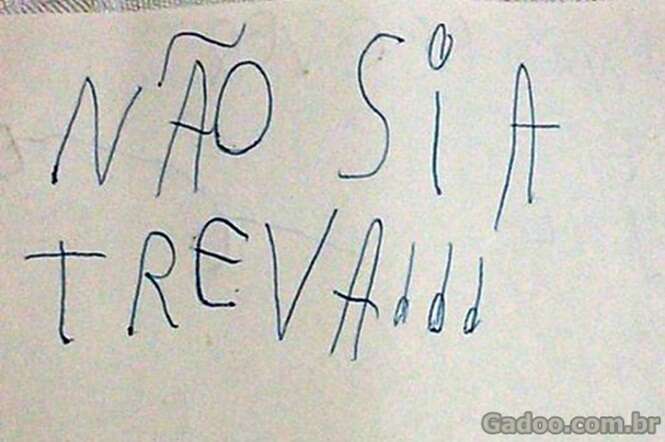 NÃO SiA
TREVA!!!
Gadoo.com.br